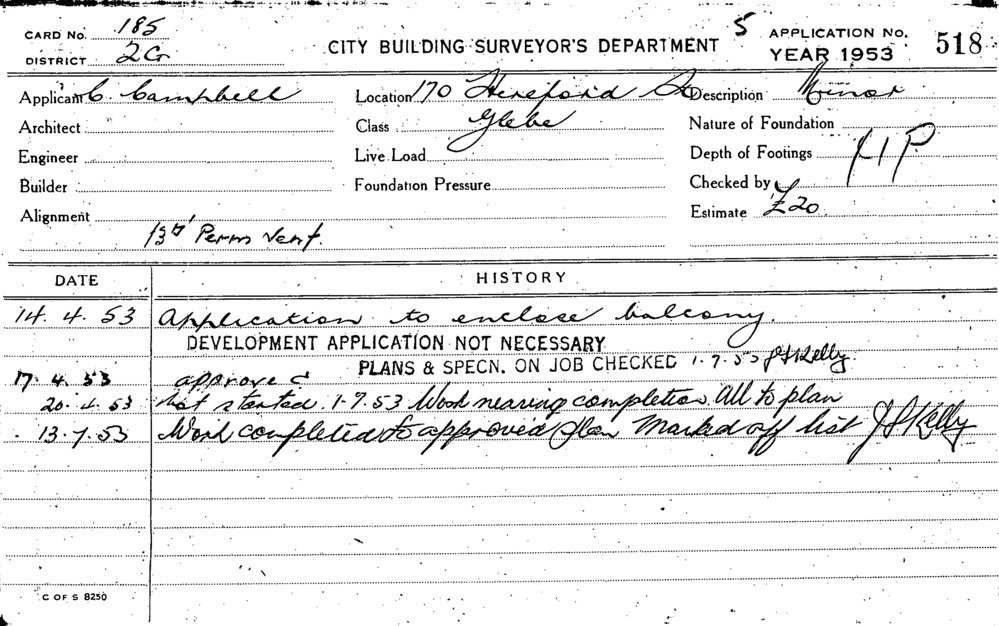 CARD No. 185
DISTRICT 2G
CITY BUILDING SURVEYOR'S DEPARTMENT
5 APPLICATION No. 518
YEAR 1953
Applicant C. Campbell
Location 170 Hereford St
Description Minor
Architect
Class Glebe
Nature of Foundation
Engineer
Live Load
Depth of Footings
Builder
Foundation Pressure
Checked by
Alignment
Estimate £20
Perm Vent.
DATE HISTORY
14. 4. 53 Application to enclose balcony.
DEVELOPMENT APPLICATION NOT NECESSARY
PLANS & SPECN. ON JOB CHECKED 1.7.53 J S Kelly.
17. 4. 53 approved
20. 4. 53 Not started. 1.7.53 Work nearing completion. All to plan
13.7.53 Work completed to approved plan Marked off list J S Kelly
C OF S 8250